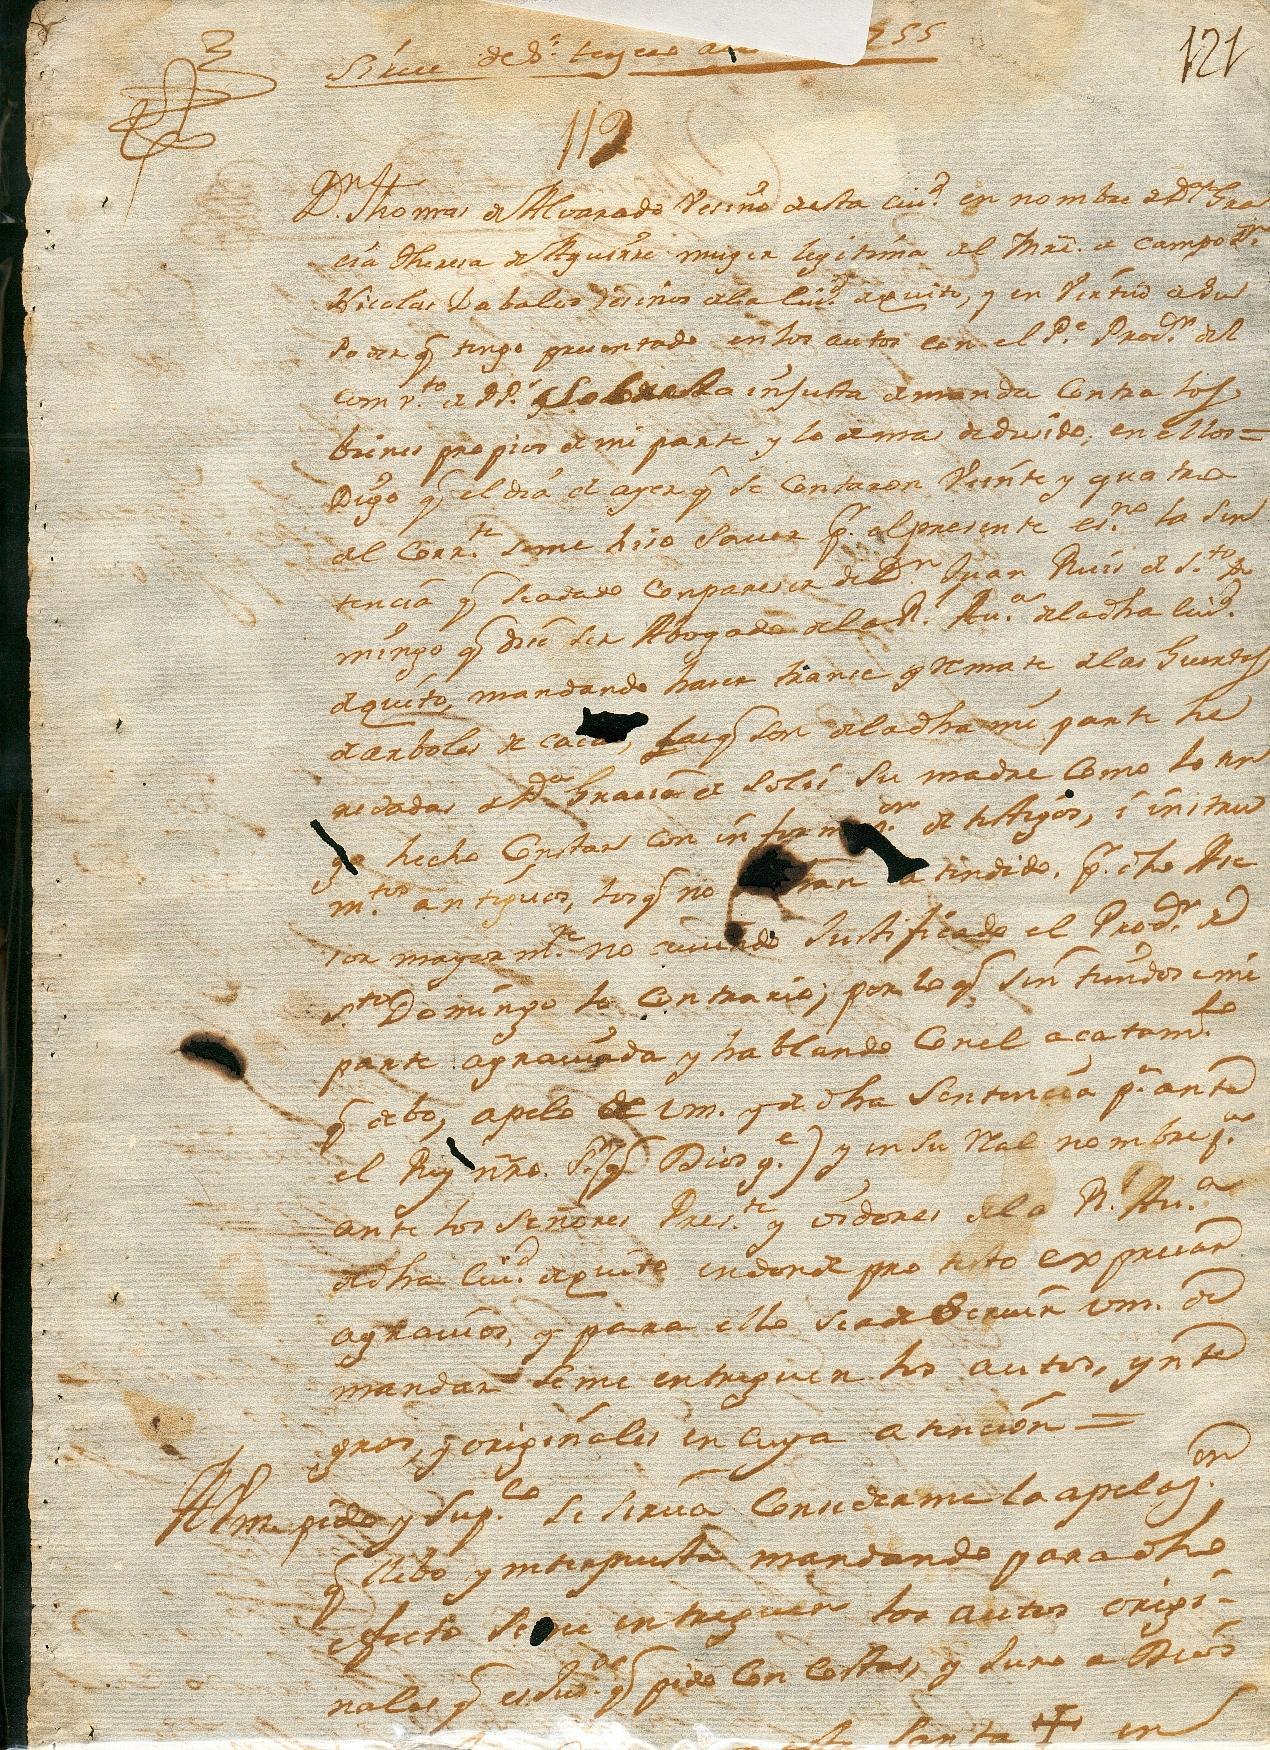 Sirve de S.º tercero a 755
121
112
D.n Thomas de Alvarado Vesino desta ciu.d en nombre de D.a Gra
cia Theresa de Aguirre muger legitima del Mre. de campo D.n
Nicolas Dabalos vesinos de la ciu.d de quito, y en virtud de su
Poder q̃ tengo presentado en los autos con el P.e Prod.r del
Comv.to de PP.s sobre la injusta demanda contra los
bienes propios de mi parte y lo demas dedusido, en ellos =
Digo q̃ el dia de ayer q̃ se contaron Veinte y quatro
del Corr.te se me hiso saver p.r el presente es.no la sen
tencia q̃ se a dado con pareser de D.n Juan Ruis de S.to Do
mingo q̃ dise ser Abogado de la R.l Au.a de la dha ciu.d
de quito, mandando haser transe y remate de las huertas
de arboles de cacao, q̃ son de la dha mi parte he
redadas de D.a Gracia de Solis su madre como lo ten
go hecho Constar con informas.on de testigos, i instru
m.tos antiguos, los q̃ no han atendido, p.r dho Ase
sor mayorm.te no aviendo justificado el Prod.r de
S.to Domingo lo contrario; por lo q̃ sintiendose mi
parte agraviada y hablando con el acatam.to
q̃ debo, apelo de Vm. y de dha Sentencia p.a ante
el Rey nro. S.r (q̃ Dios g.e) y en su Real nombre p.a
ante los Señores Pres.te y oidores de la R.l Au.a
de dha Ciu.d de quito en donde protesto expresar
agravios, y para ello se a de Servir Vm. de
mandar se me entreguen los autos, ynte
gros, y originales en cuya atencion =
A Vm. pido y Sup.co se sirva Consederme la apelas.on
q̃ llebo ynterpuesta mandando para dho
efecto se me entreguen los autos origi-
nales q̃ es Jus.a q̃ pido con costas, y Juro a Dios
Santa + en